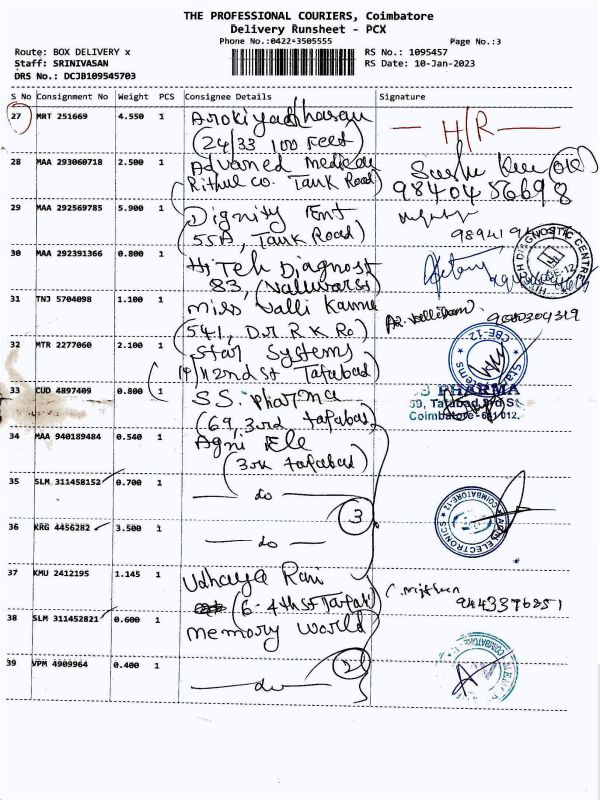 THE PROFESSIONAL COURIERS, Coimbatore
Delivery Runsheet - PCX
Phone No.:0422-3505555 Page No.:3
Route: BOX DELIVERY x RS No.: 1095457
Staff: SRINIVASAN RS Date: 10-Jan-2023
DRS No.: DCJB109545703
S No Consignment No Weight PCS Consignee Details Signature
27 MRT 251669 4.550 1 H/R
(24/33 100 Feet)
28 MAA 293060718 2.500 1 Medical
Co. Tank Road) 9840486698
29 MAA 292569785 5.900 1 Dignity Ent
55A, Tank Road)
30 MAA 292391366 0.800 1 Hi Teh Diagnost DIAGNOSTIC CENTRE
83, (Valuvarst
31 TNJ 5704098 1.100 1 Miss Valli Kannu
(541, D.r R K Ro)
32 MTR 2277060 2.100 1 Star Systems CBE-12
2nd St Tatabad)
33 CUD 4897409 0.800 1 S.S. Pharma PHARMA
(69, 3rd tatabad) 69, Tatabad, 3rd St.
Coimbatore - 641 012.
34 MAA 940189484 0.540 1 Agni Ele
tatabad)
35 SLM 311458152 0.700 1 do COIMBATORE-12
3 AGNI ELECTRONICS
36 KRG 4456282 3.500 1 do
37 KMU 2412195 1.145 1 Udhaya Rani
(6-4th st Tatab) 9443376851
38 SLM 311452821 0.600 1 memory world
2
39 VPM 4909964 0.400 1 do